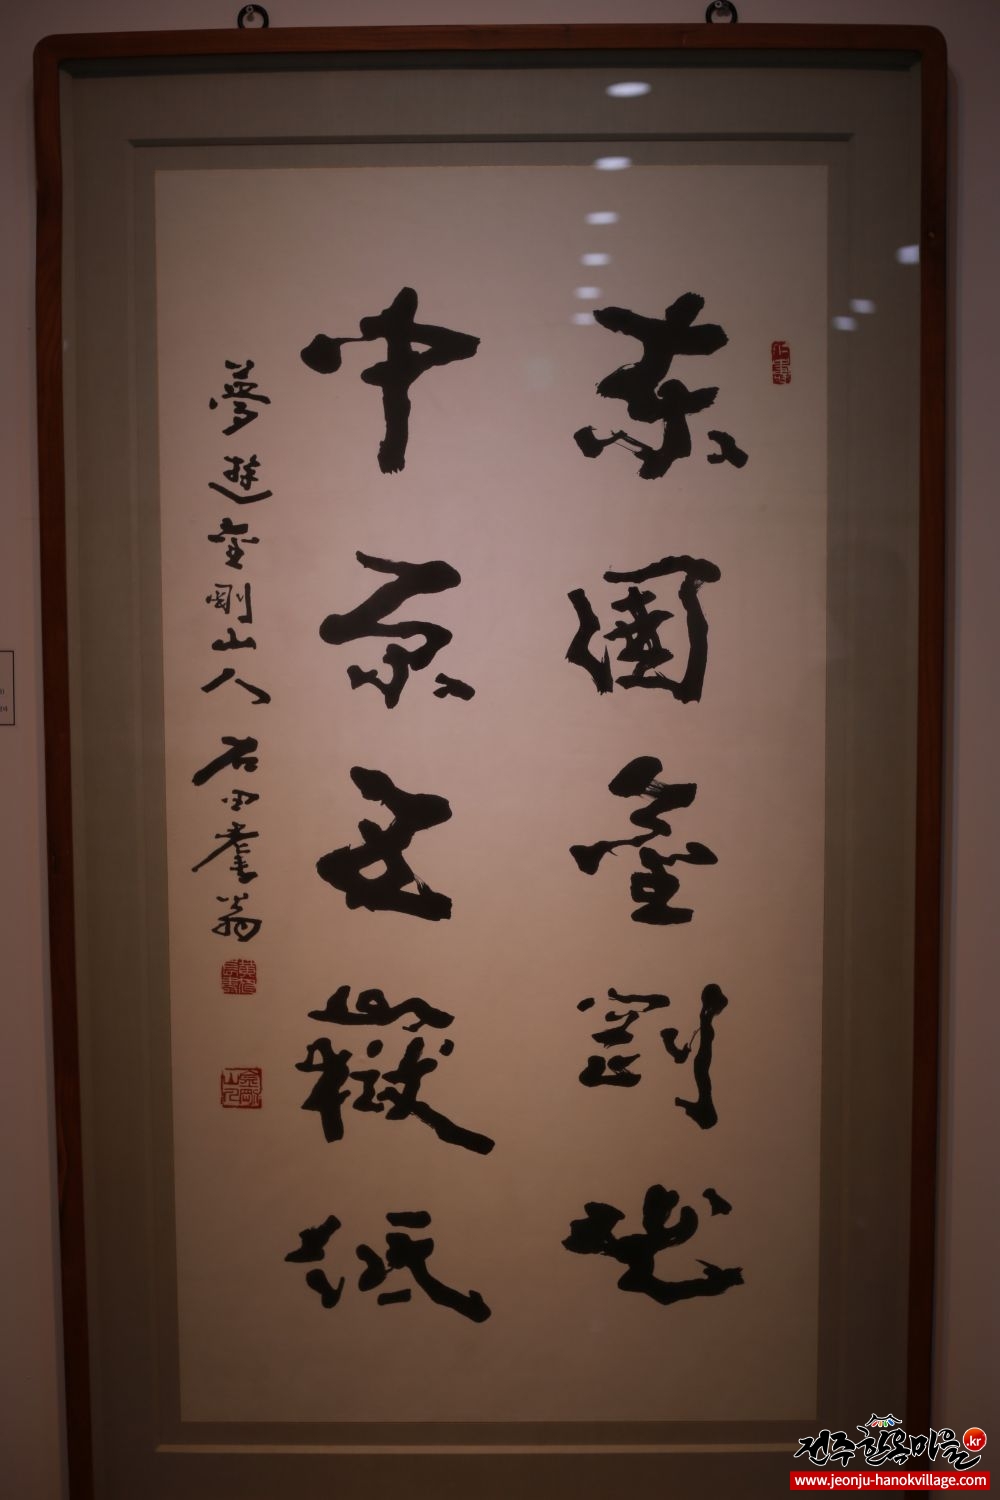 東國金剛出
中原五嶽低
夢遊金剛山人 石田耆翁
전주한옥마을.kr
www.jeonju-hanokvillage.com